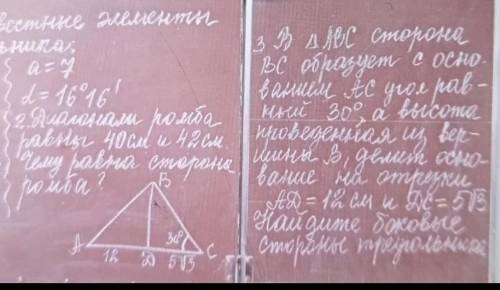 вестные элементы
ьника:
a = 7
α = 16°16'
2. Диагонали ромба
равны 40см и 42см.
Чему равна сторона
ромба?
B
A 12 D 5√3 C
30°
3. В △ABC сторона
BC образует с осно-
ванием AC угол рав-
ный 30°, а высота
проведенная из вер-
шины B, делит осно-
вание на отрезки
AD = 12 см и DC = 5√3
Найдите боковые
стороны треугольника